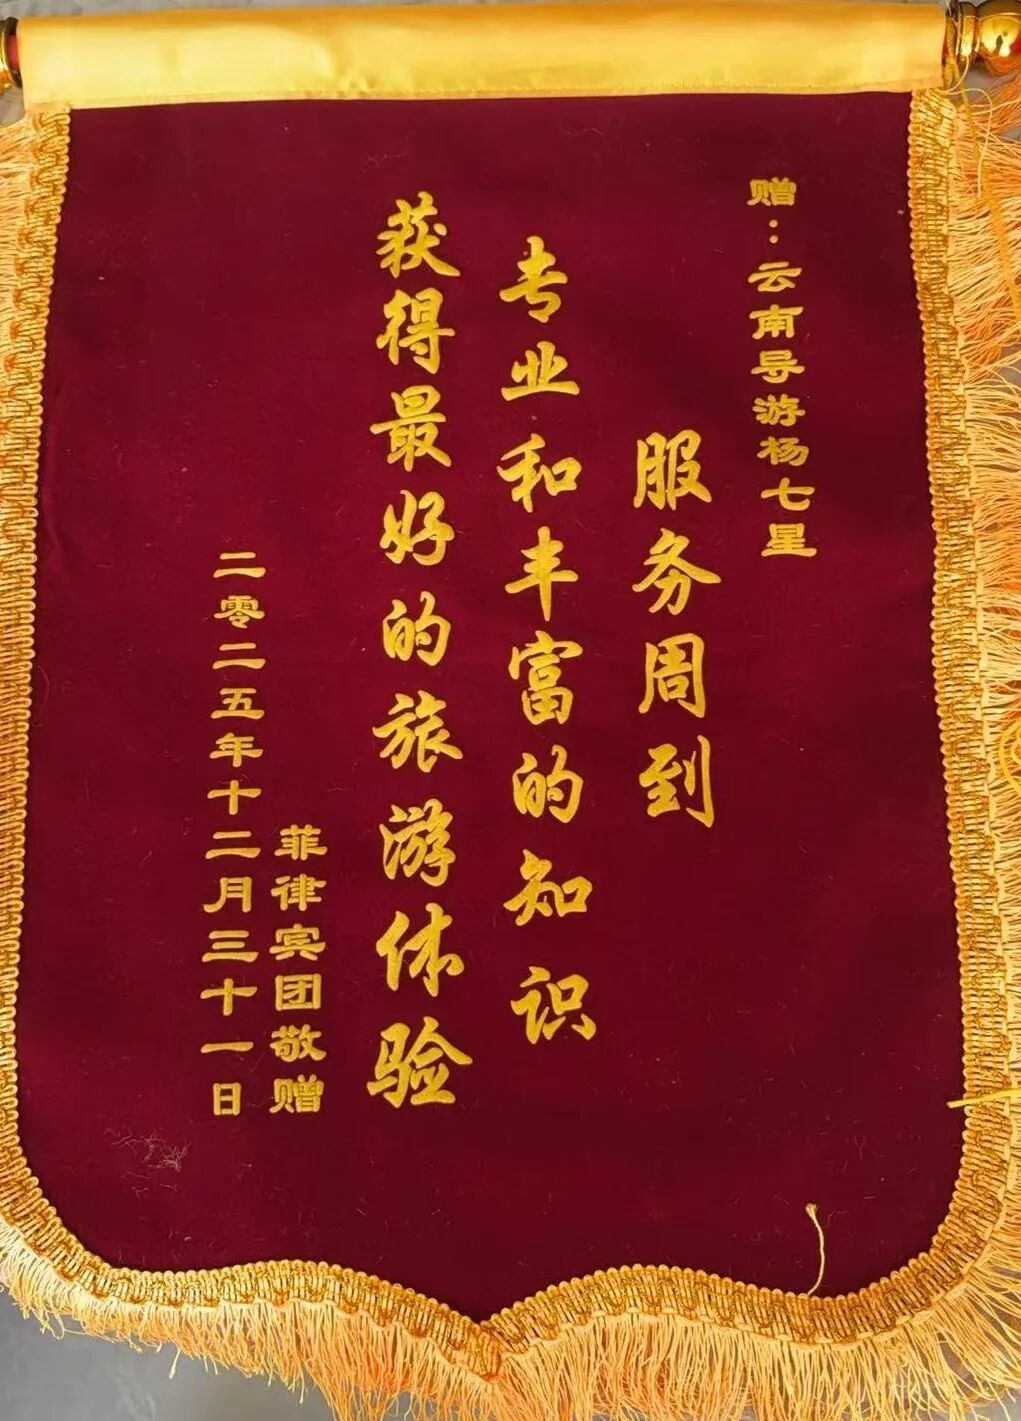 赠：云南导游杨七星
服务周到
专业和丰富的知识
获得最好的旅游体验
菲律宾团敬赠
二零二五年十二月三十一日